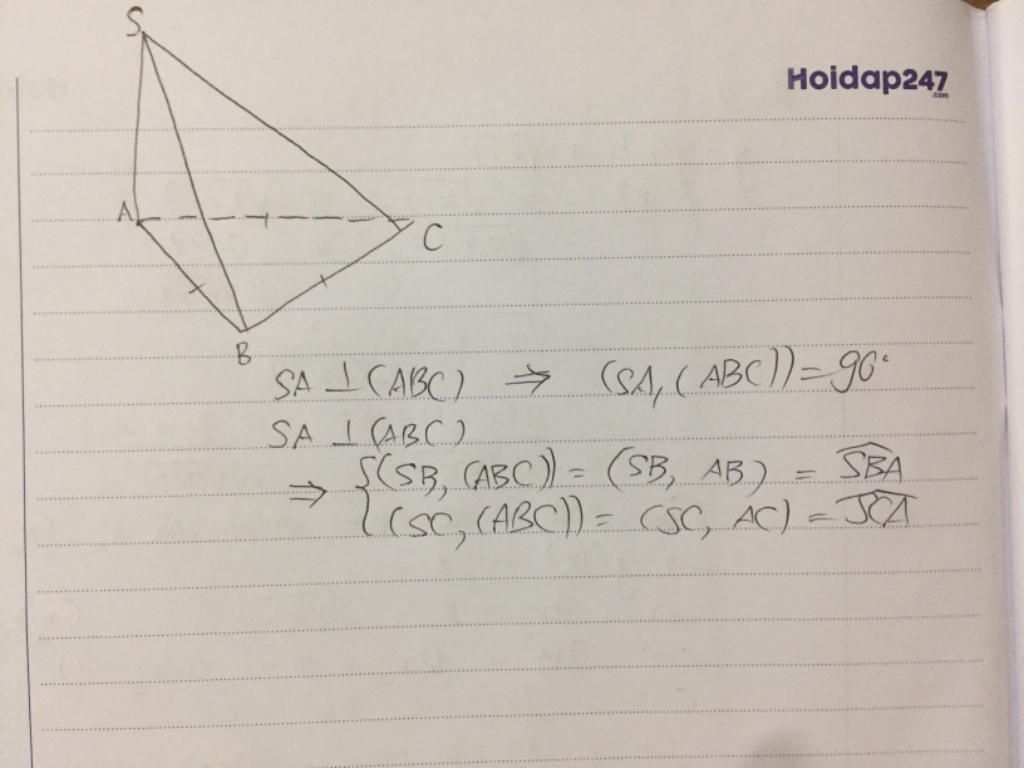 S
Hoidap247
.com
A
C
B
SA ⊥ (ABC) ⇒ (SA, (ABC)) = 90°
SA ⊥ (ABC)
⇒ { (SB, (ABC)) = (SB, AB) = \widehat{SBA}
(SC, (ABC)) = (SC, AC) = \widehat{SCA}